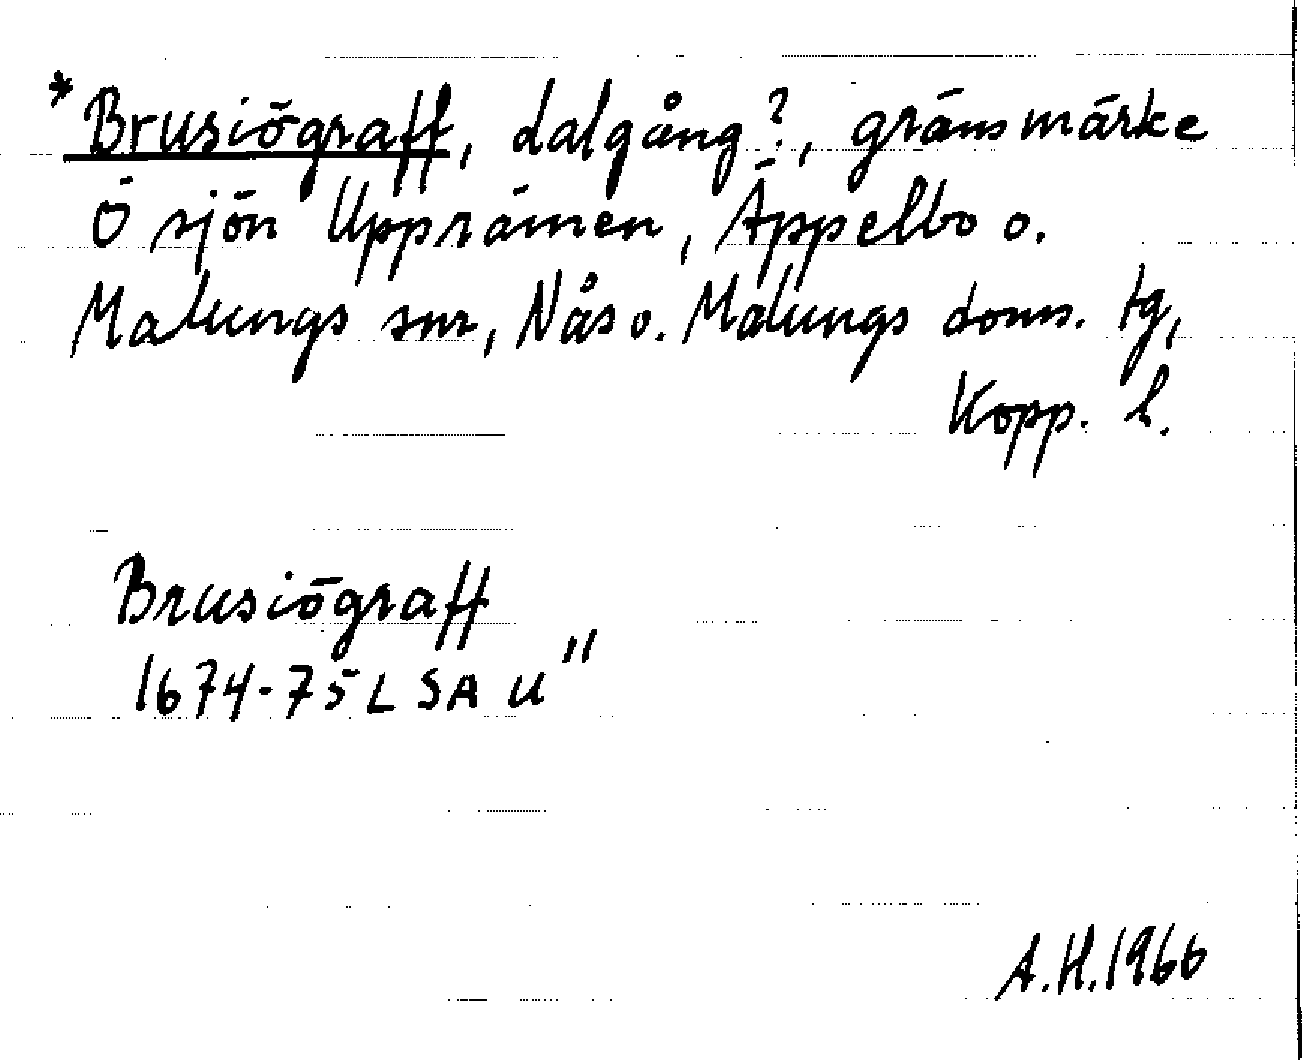 *Brusiögraff, dalgång?, gränsmärke
Ö sjön Upprämen, Äppelbo o.
Malungs snr, Nås o. Malungs doms. tg,
Kopp. l.
Brusiögraff
1674-75 L S A U"
A.H. 1966